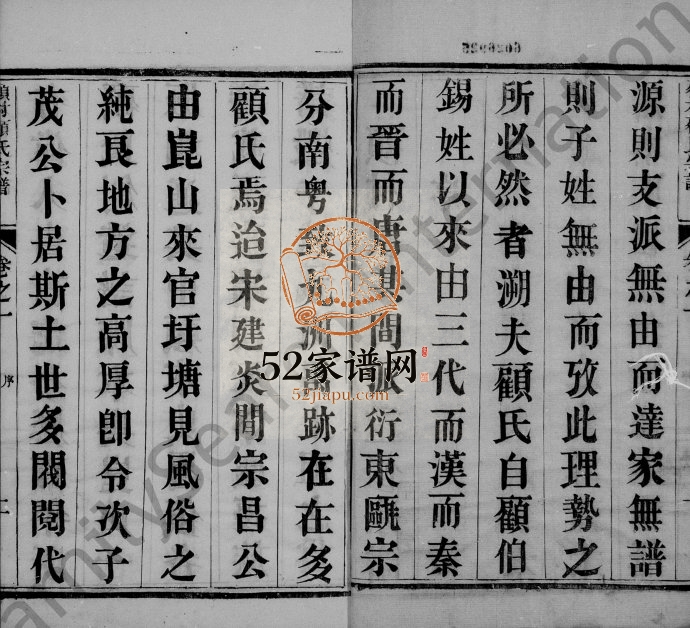 源則支派無由而達家無譜
則子姓無由而攷此理勢之
所必然者溯夫顧氏自顧伯
錫姓以來由三代而漢而秦
而晋而唐其間派衍東甌宗
分南粤
跡在在多
顧氏焉迨宋建炎間宗昌公
由崑山來官圩塘見風俗之
純良地方之高厚卽令次子
茂公卜居斯土世多閥閱代
顧氏宗譜
卷之一
序
52家谱网
52jiapu.com
FamilySearch International